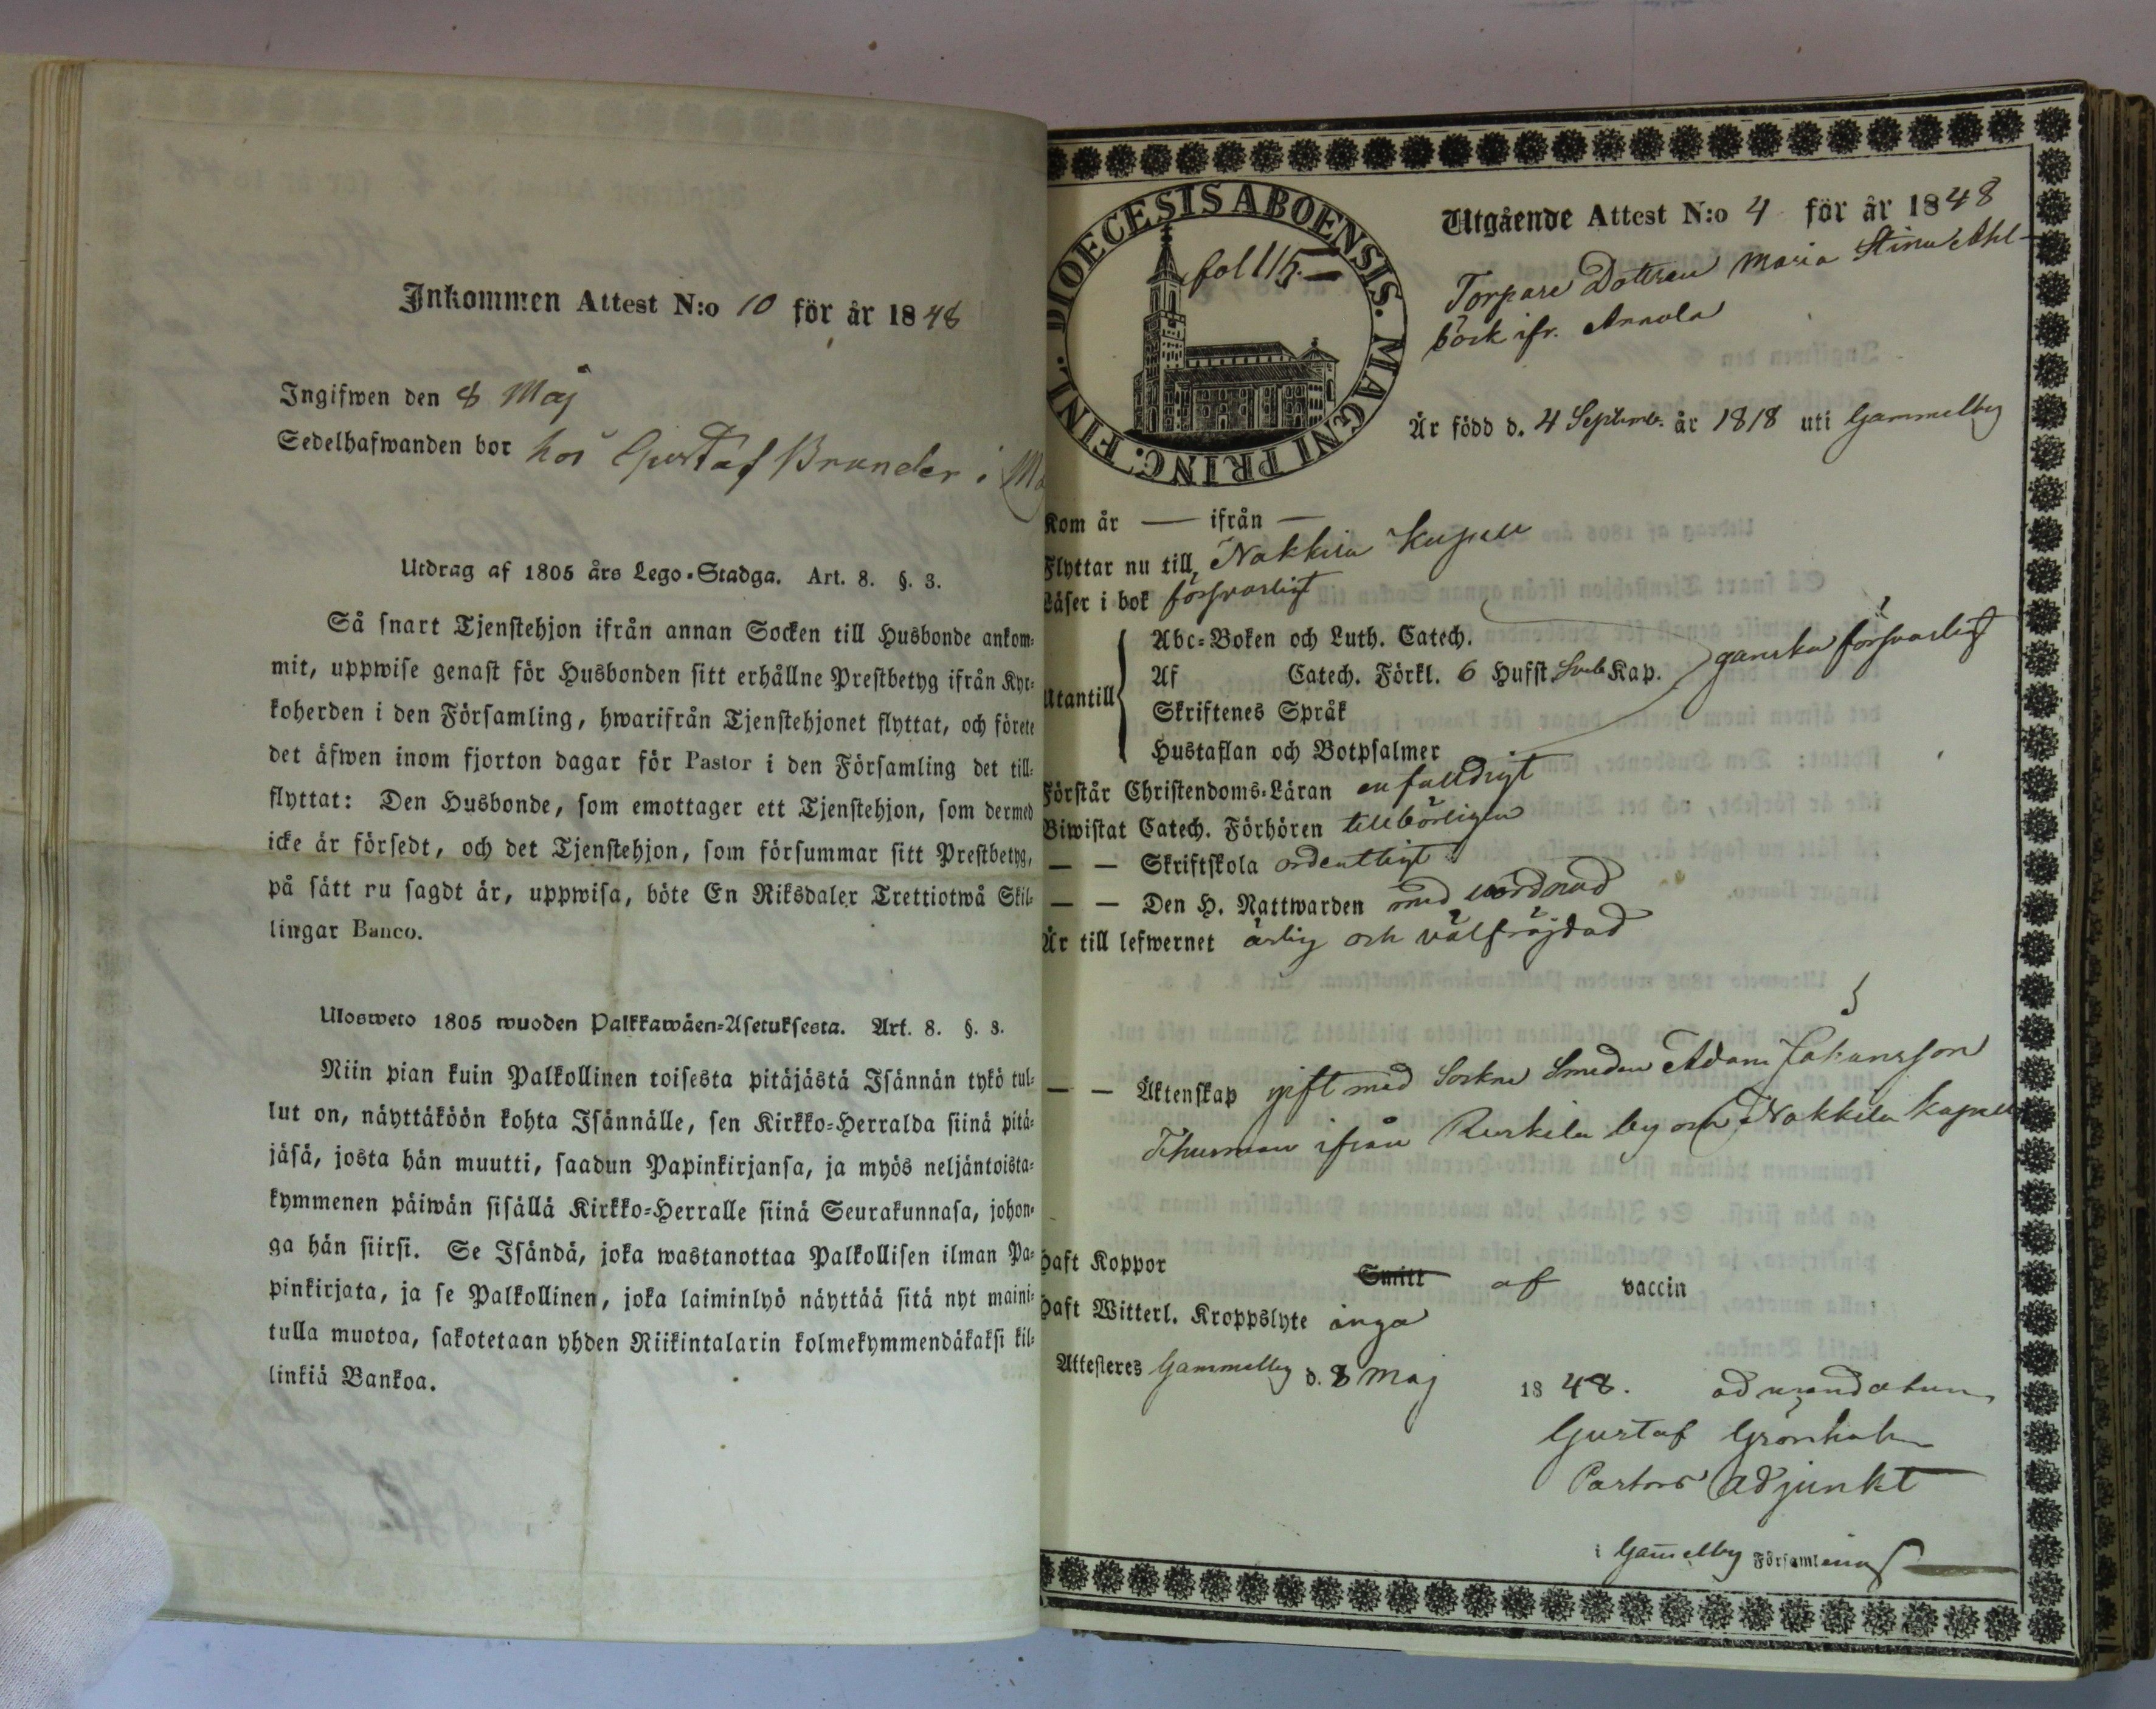 Inkommen Attest N:o 10 för år 1848
Ingifwen den 8 Maj
Sedelhafwanden bor hos Gustaf Brander i
Utdrag af 1805 års Lego-Stadga. Art. 8. §. 3.
Så snart Tjenstehjon ifrån annan Socken till Husbonde ankom-
mit, uppwise genast för Husbonden sitt erhållne Prestbetyg ifrån Kyr-
koherden i den Församling, hwarifrån Tjenstehjonet flyttat, och förete
det äfwen inom fjorton dagar för Pastor i den Församling det till-
flyttat: Den Husbonde, som emottager ett Tjenstehjon, som dermed
icke är försedt, och det Tjenstehjon, som försummar sitt Prestbetyg,
på sätt nu sagdt är, uppwisa, böte En Riksdaler Trettiotwå Skil-
lingar Banco.
Ulosweto 1805 wuoden Palkkawäen-Asetuksesta. Art. 8. §. 3.
Niin pian kuin Palkollinen toisesta pitäjästä Isännän tykö tul-
lut on, näyttäköön kohta Isännälle, sen Kirkko-Herralda siinä pitä-
jäsä, josta hän muutti, saadun Papinkirjansa, ja myös neljäntoista-
kymmenen päiwän sisällä Kirkko-Herralle siinä Seurakunnasa, johon-
ga hän siirsi. Se Isändä, joka wastanottaa Palkollisen ilman Pa-
pinkirjata, ja se Palkollinen, joka laiminlyö näyttää sitä nyt maini-
tulla muotoa, sakotetaan yhden Riikintalarin kolmekymmendäkaksi kil-
linkiä Bankoa.
DIOECESIS ABOENSIS. MAGNI PRINC. FINL.
fol 115.
Utgående Attest N:o 4 för år 1848
Torpare Dottren Maria Stina Ahl-
bäck ifr. Annola
Är född d. 4 Septemb. år 1818 uti Gammelby
Kom år — ifrån —
Flyttar nu till Nakkila Kapell
Läser i bok försvarligt
Utantill
Abc-Boken och Luth. Catech.
Af Catech. Förkl. 6 Hufst. Kap.
Skriftenes Språk
Hustaflan och Botpsalmer
ganska försvarligt
Förstår Christendoms-Läran enfaldigt
Biwistat Catech. Förhören tillbörligen
— — Skriftskola ordentligt
— — Den H. Nattwarden med vördnad
Är till lefwernet ärlig och välfräjdad
— — Äktenskap gift med Sockne Smeden Adam Johansson
Thurman ifrån Ruskila by och Nakkila kapell
Haft Koppor Smitt af vaccin
Haft Witterl. Kroppslyte inga
Attesteres Gammelby d. 8 Maj 1848. ad mandatum
Gustaf Grönholm
Pastors Adjunkt
i Gam̅elby Församling